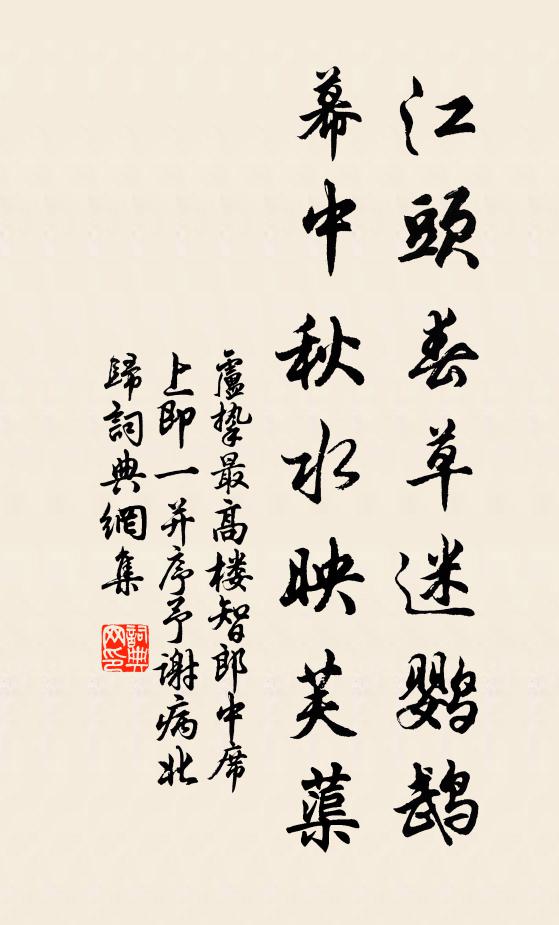 江頭春草迷鹦鵡
幕中秋水映芙蕖
盧挚最高楼智郎中席
上即一并序予谢病北
歸詞典網集
詞典
网印